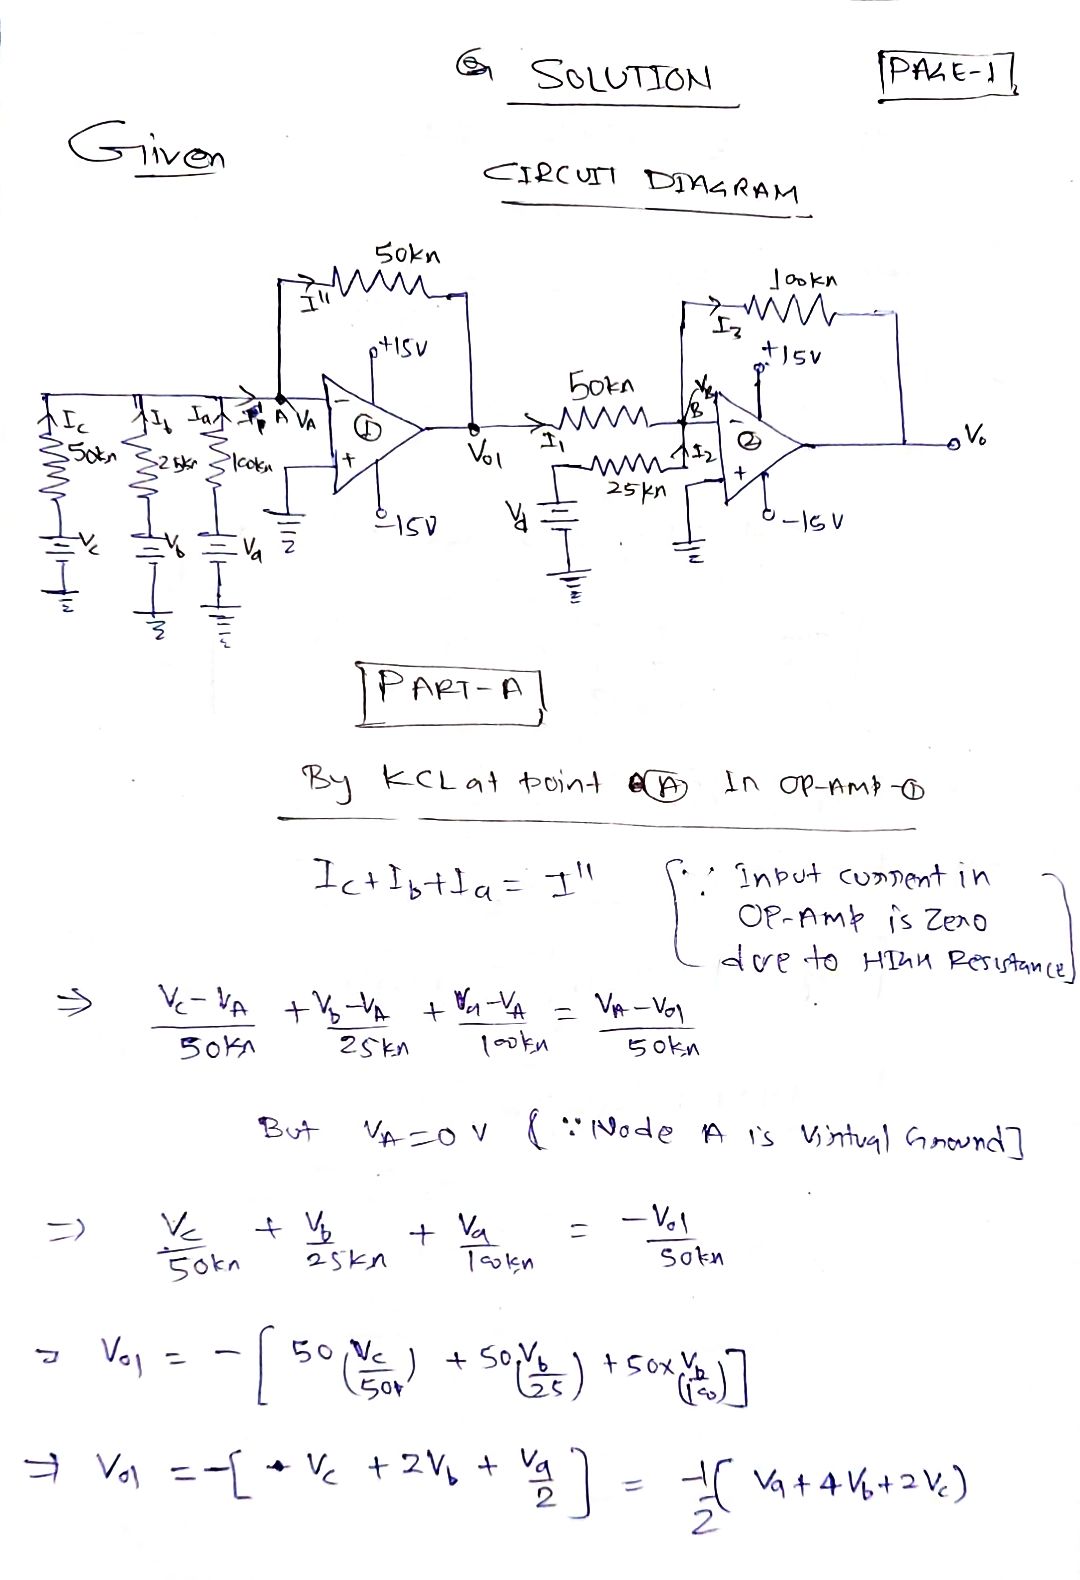 SOLUTION
PAGE-1
Given
CIRCUIT DIAGRAM
50kΩ
I"
+15V
A VA
-
①
+
-15V
Vo1
Ic Ib Ia
50kΩ 25kΩ 100kΩ
Vc Vb Va
100kΩ
I3
+15V
50kΩ
I1
VB
B
-
②
+
Vo
I2
25kΩ
Vd
-15V
PART-A
By KCL at point Ⓐ In OP-AMP-①
Ic+Ib+Ia = I" [∵ Input current in
OP-Amp is Zero
due to HIGH Resistance]
⇒ Vc-VA/50kΩ + Vb-VA/25kΩ + Va-VA/100kΩ = VA-Vo1/50kΩ
But VA=0V [∵ Node A is Virtual Ground]
⇒ Vc/50kΩ + Vb/25kΩ + Va/100kΩ = -Vo1/50kΩ
⇒ Vo1 = -[50(Vc/50) + 50(Vb/25) + 50x(Vb/100)]
⇒ Vo1 = -[Vc + 2Vb + Va/2] = -1/2(Va+4Vb+2Vc)